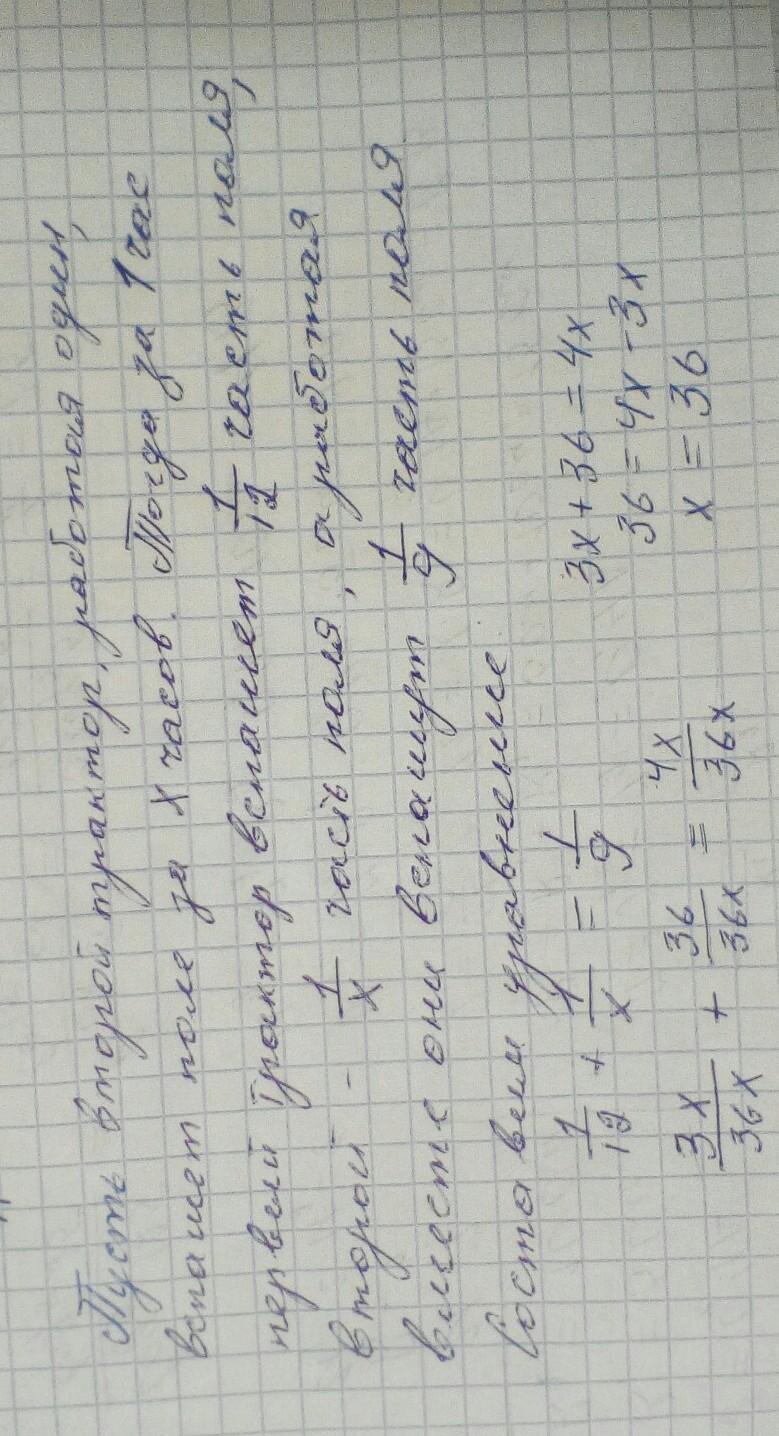 Пусть второй трактор, работая один,
вспашет поле за x часов. Тогда за 1 час
первый трактор вспашет 1/12 часть поля,
второй - 1/x часть поля, а работая
вместе они вспашут 1/9 часть поля
Составим уравнение
1/12 + 1/x = 1/9
3x/36x + 36/36x = 4x/36x
3x + 36 = 4x
36 = 4x - 3x
x = 36